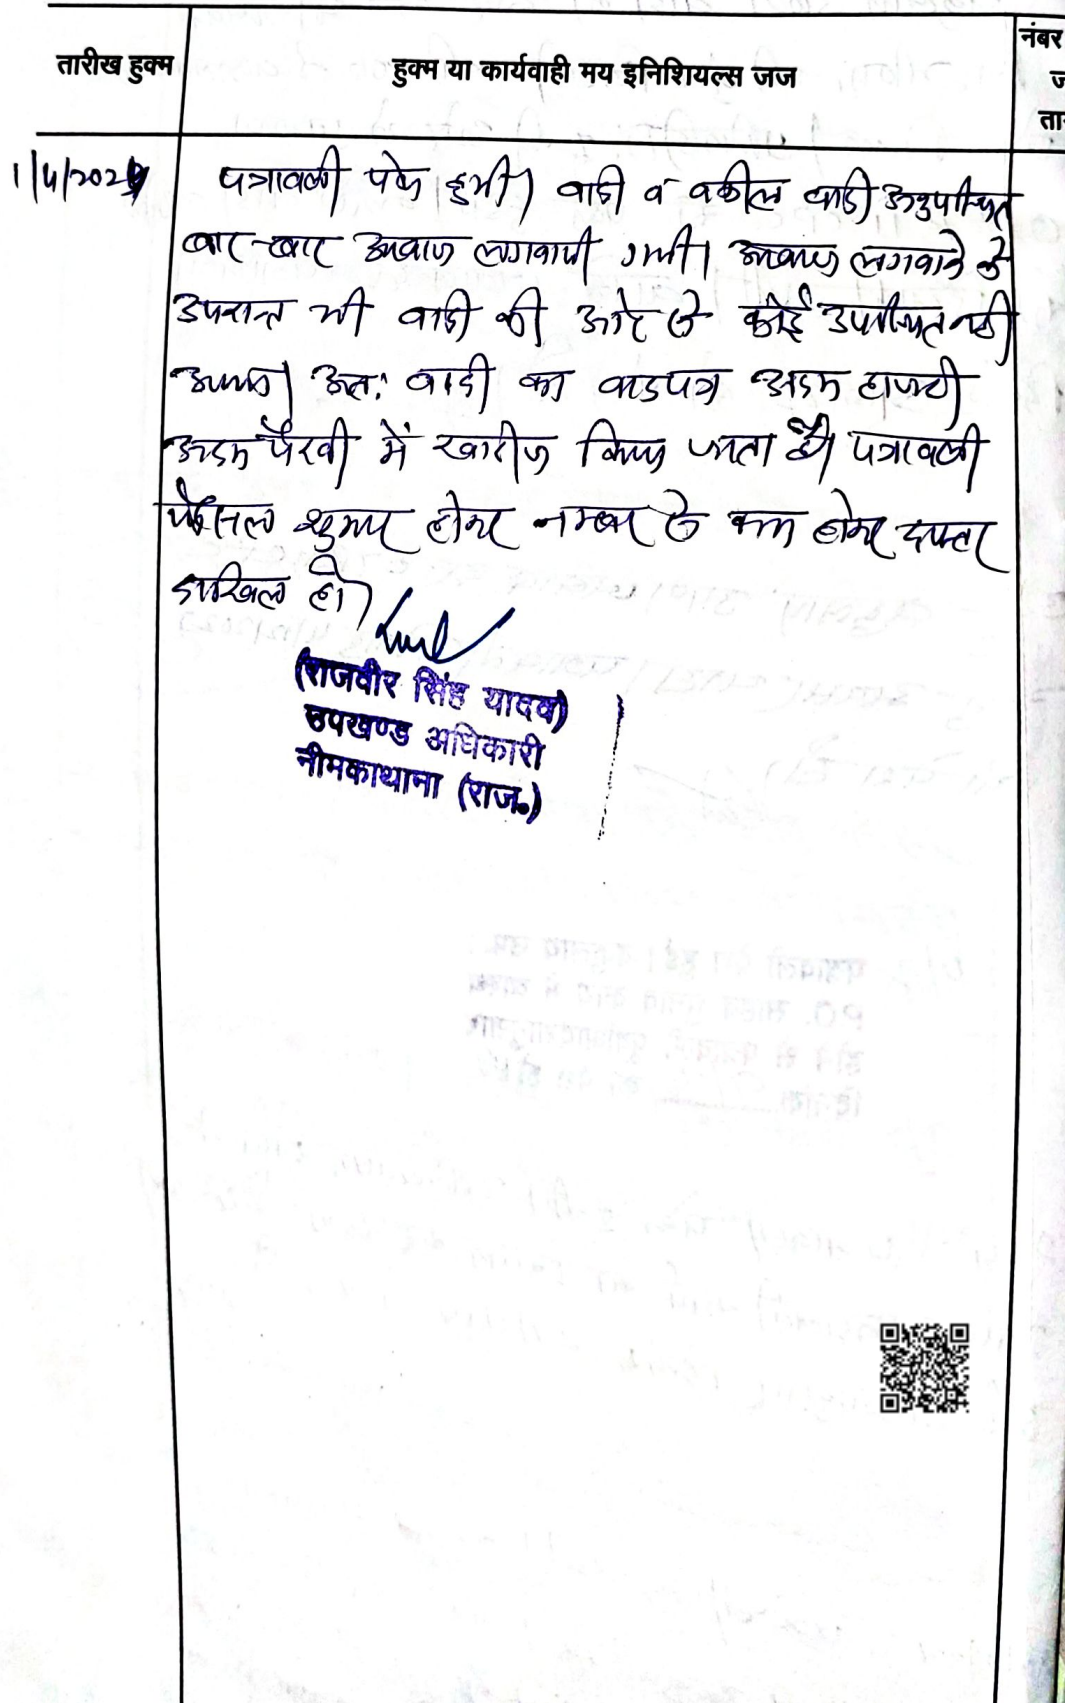 तारीख हुक्म
हुक्म या कार्यवाही मय इनिशियल्स जज
नंबर
ज
ता
1/4/202
पत्रावली पेश हुयी। वादी व वकील वादी अनुपस्थित
बार-बार आवाज लगवायी गयी। आवाज लगवाने के
उपरान्त भी वादी की ओर से कोई उपस्थित नही
आया। अतः वादी का वादपत्र अदम हाजरी
अदम पैरवी में खारीज किया जाता है। पत्रावली
फैसल शुमार होकर नम्बर से कम होकर दफ्तर
दाखिल हो।
(राजवीर सिंह यादव)
उपखण्ड अधिकारी
नीमकाथाना (राज.)